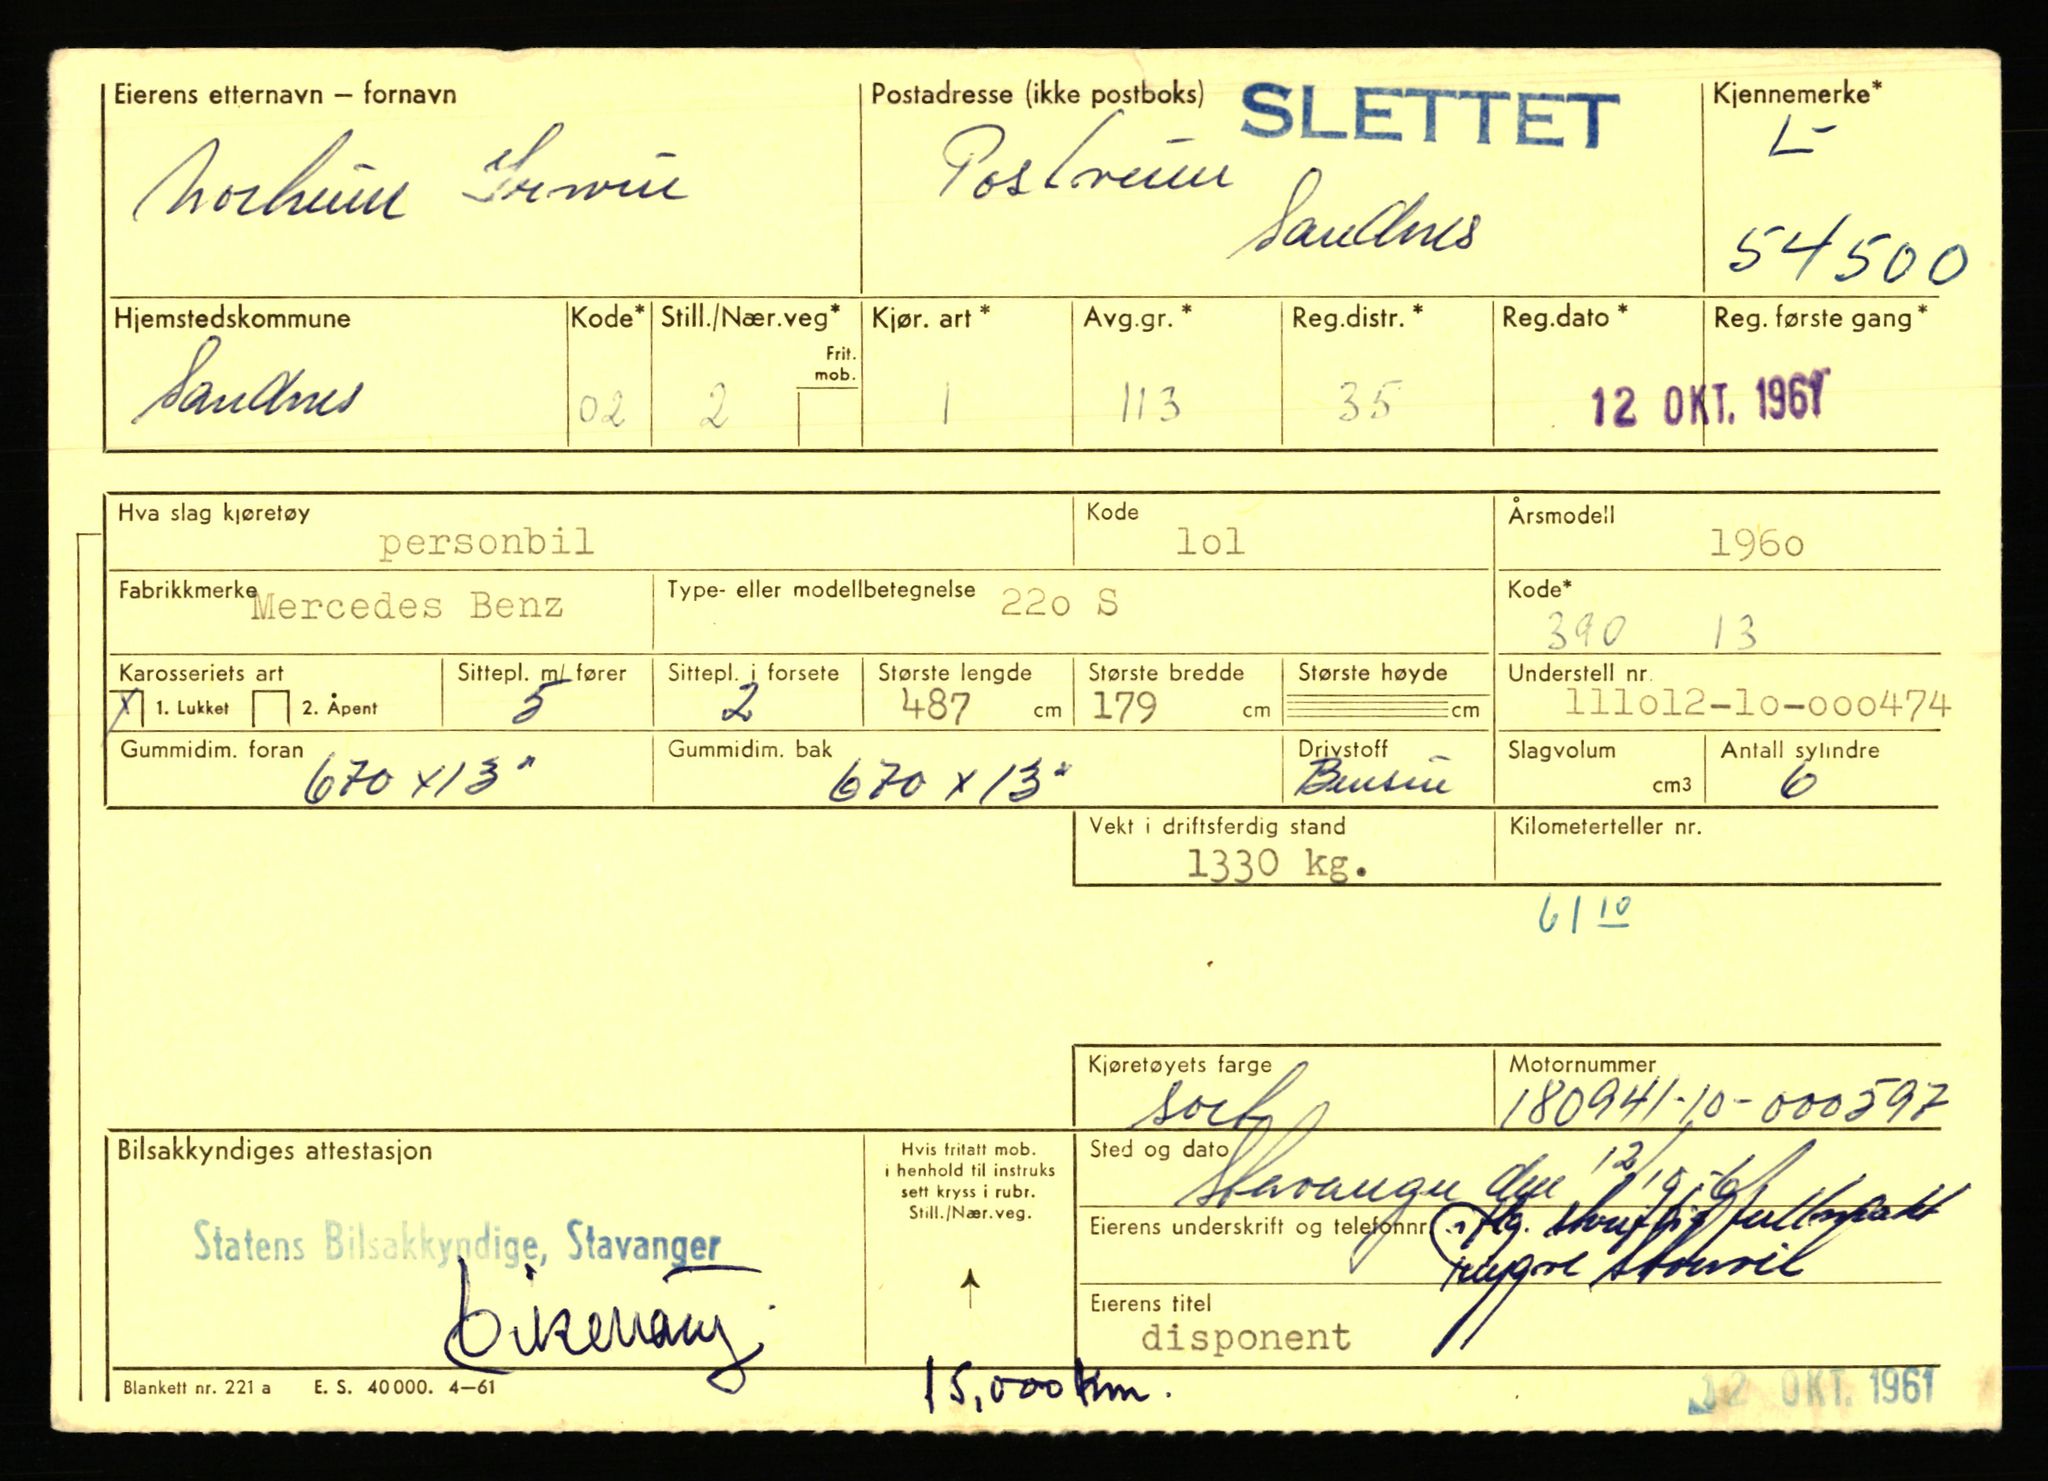 Eierens etternavn – fornavn
Postadresse (ikke postboks)
SLETTET
Kjennemerke*
L-
Norheim
Postveien
Sandnes
54500
Hjemstedskommune
Kode*
Still./Nær.veg*
Kjør. art *
Avg.gr. *
Reg.distr. *
Reg.dato *
Reg. første gang *
Frit.
mob.
Sandnes
02
2
1
113
35
12 OKT. 1961
Hva slag kjøretøy
personbil
Kode
lol
Årsmodell
196o
Fabrikkmerke
Mercedes Benz
Type- eller modellbetegnelse
22o S
Kode*
390 13
Karosseriets art
Sittepl. m/ fører
Sittepl. i forsete
Største lengde
Største bredde
Største høyde
Understell nr.
X 1. Lukket 2. Åpent
5
2
487 cm
179 cm
cm
111o12-1o-ooo474
Gummidim. foran
670 x 13"
Gummidim. bak
670 x 13"
Drivstoff
Bensin
Slagvolum
cm3
Antall sylindre
6
Vekt i driftsferdig stand
1330 kg.
Kilometerteller nr.
61 10
Kjøretøyets farge
sort
Motornummer
180941-10-000597
Bilsakkyndiges attestasjon
Hvis fritatt mob.
i henhold til instruks
sett kryss i rubr.
Still./Nær.veg.
Sted og dato
Stavanger den 12/10-61
Statens Bilsakkyndige, Stavanger
Eierens underskrift og telefonnr.
Eierens titel
disponent
Blankett nr. 221 a E. S. 40 000. 4–61
15,000 km.
12 OKT. 1961